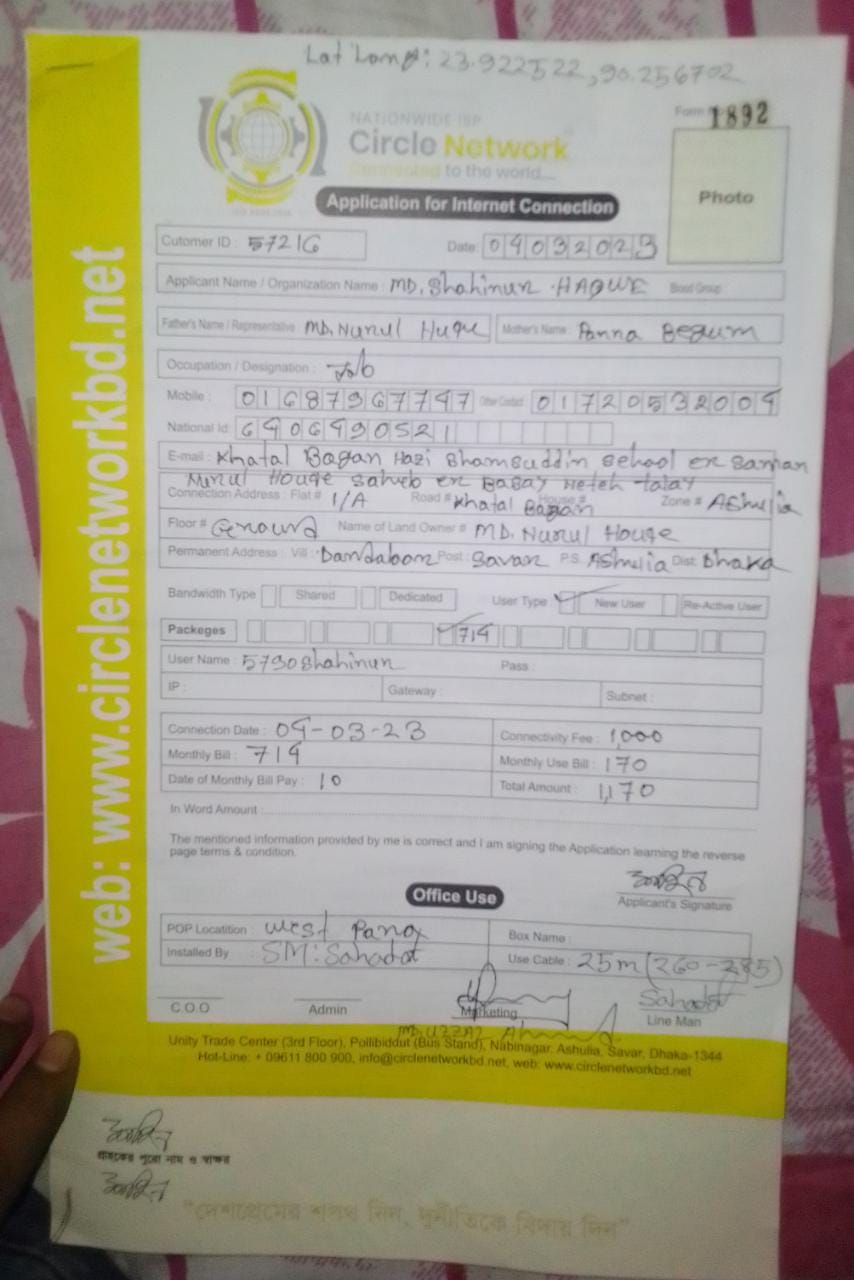 Lat Long: 23.922522, 90.256702
NATIONWIDE ISP
Circle Network
Connected to the world....
Form 1892
Photo
Application for Internet Connection
Cutomer ID : 57216
Date: 04032023
Applicant Name / Organization Name : MD. Shahinur HAQUE Blood Group
Father's Name / Representative : MD. Nurul Huqe Mother's Name : Panna Begum
Occupation / Designation : Job
Mobile : 01687967747 Other Contact : 01720532004
National Id: 6406490521
E-mail : Khatal Bagan Hazi Shamsuddin School er Saman
Nurul Houqe Saheb er Basay
Connection Address : Flat # 1/A Road # Khatal Bagan House # Zone # Ashulia
Floor # Name of Land Owner # MD. Nurul Houqe
Permanent Address : Vill : Post : Savar P.S Ashulia Dist: Dhaka
Bandwidth Type Shared Dedicated User Type : New User Re-Active User
Packeges 714
User Name : 5790Shahinur Pass :
IP : Gateway : Subnet :
Connection Date : 04-03-23 Connectivity Fee : 1,000
Monthly Bill : 714 Monthly Use Bill : 170
Date of Monthly Bill Pay : 10 Total Amount : 1,170
In Word Amount :
The mentioned information provided by me is correct and I am signing the Application learning the reverse
page terms & condition.
Applicant's Signature
Office Use
POP Locatition : West Box Name :
Installed By SM: Sahadat Use Cable : 25m (260-285)
Sahadat
C.O.O Admin Marketing Line Man
MD. UZZAL Ahmed
Unity Trade Center (3rd Floor), Pollibiddut (Bus Stand), Nabinagar, Ashulia, Savar, Dhaka-1344
Hot-Line: + 09611 800 900, info@circlenetworkbd.net, web: www.circlenetworkbd.net
web: www.circlenetworkbd.net
গ্রাহকের পুরো নাম ও স্বাক্ষর
"দেশপ্রেমের শপথ নিন, দুর্নীতিকে বিদায় দিন"